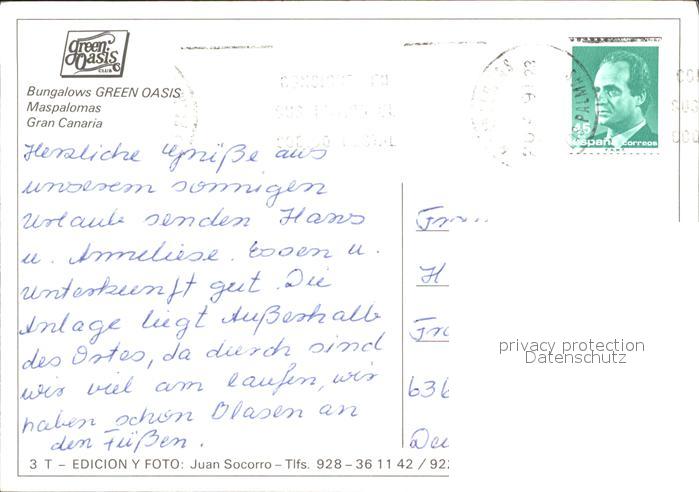 green
Oasis
CLUB
Bungalows GREEN OASIS
Maspalomas
Gran Canaria
45
España correos
Herzliche Grüße aus
unserem sonnigen
Urlaub senden Hans
u. Anneliese. Essen u.
Unterkunft gut. Die
Anlage liegt Außerhalb
des Ortes, da durch sind
wir viel am laufen, wir
haben schon Blasen an
den Füßen.
H
636
privacy protection
Datenschutz
3 T – EDICION Y FOTO: Juan Socorro – Tlfs. 928 – 36 11 42 / 922